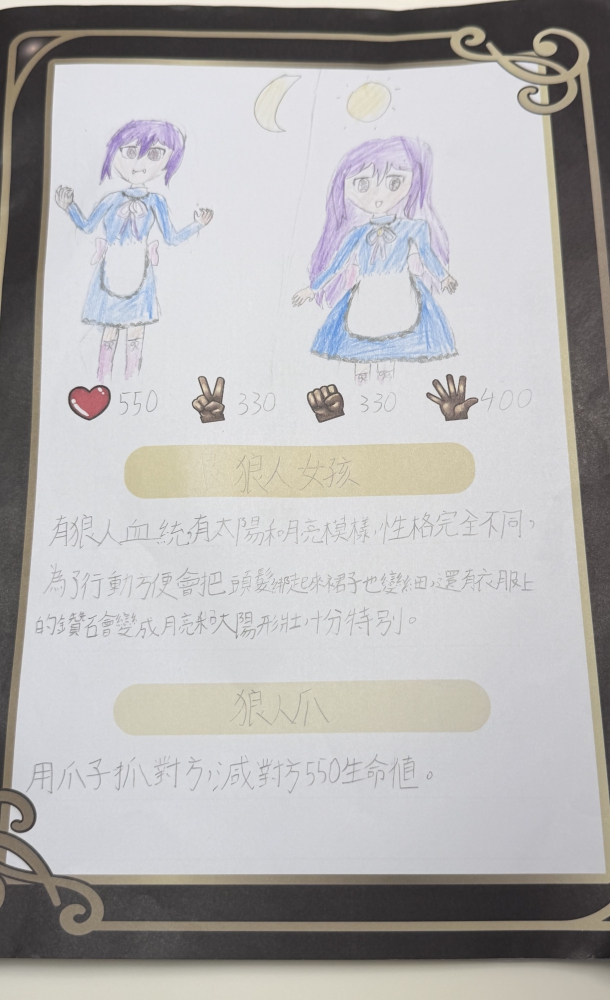 550 330 330 400
狼人女孩
有狼人血統有太陽和月亮模樣,性格完全不同,
為了行動方便會把頭髮綁起來裙子也變細,還有衣服上
的鑽石會變成月亮和太陽形壯十分特別。
狼人爪
用爪子抓對方,減對方550生命值。